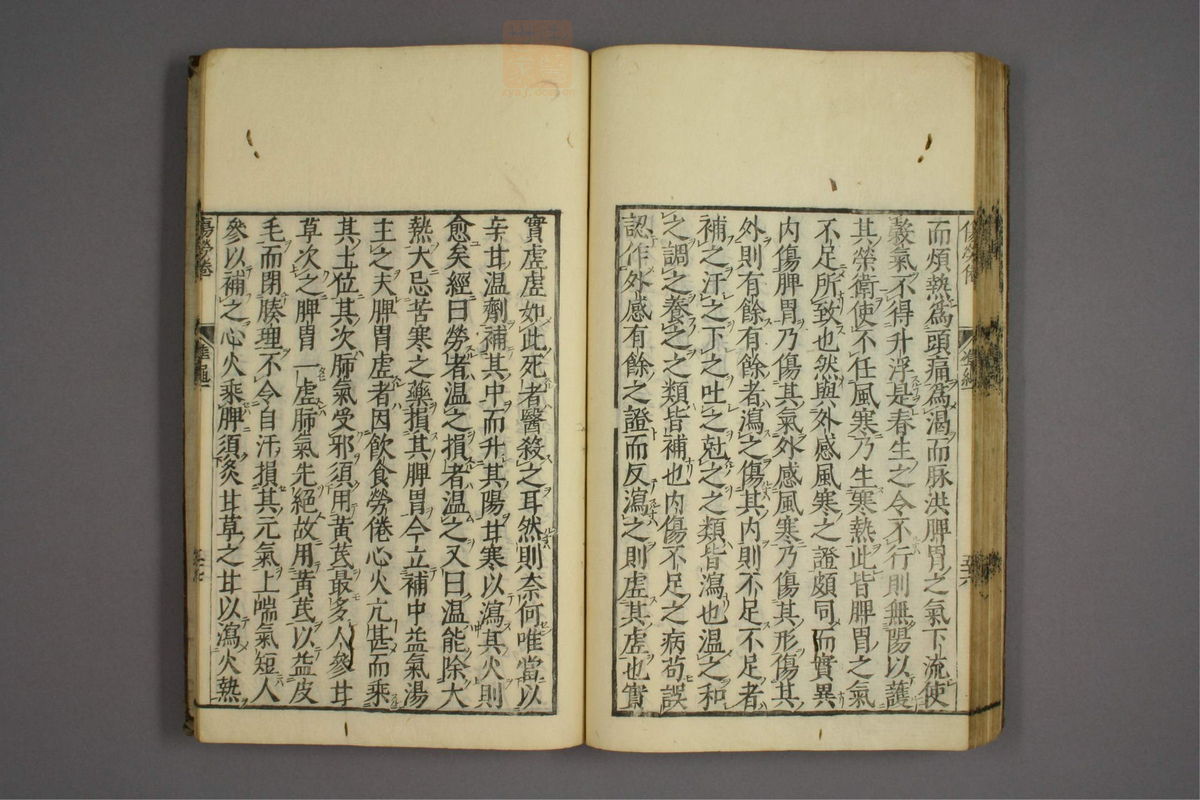 而煩熱爲頭痛爲渴而脉洪脾胃之氣下流使
穀氣不得升浮是春生之令不行則無陽以護
其榮衛使不任風寒乃生寒熱此皆脾胃之氣
不足所致也然與外感風寒之證頗同而實異
内傷脾胃乃傷其氣外感風寒乃傷其形傷其
外則有餘有餘者瀉之傷其内則不足不足者
補之汗之下之吐之尅之之類皆瀉也温之和
之調之養之之類皆補也内傷不足之病苟誤
認作外感有餘之證而反瀉之則虚其虚也實
實虚虚如此死者醫殺之耳然則奈何唯當以
辛甘温劑補其中而升其陽甘寒以瀉其火則
愈矣經曰勞者温之損者温之又曰温能除大
熱大忌苦寒之藥損其脾胃今立補中益氣湯
主之夫脾胃虚者因飲食勞倦心火亢甚而乘
其土位其次肺氣受邪須用黄芪最多人參甘
草次之脾胃一虚肺氣先絕故用黄芪以益皮
毛而閉腠理不令自汗損其元氣上喘氣短人
參以補之心火乘脾須炙甘草之甘以瀉火熱
傷勞倦